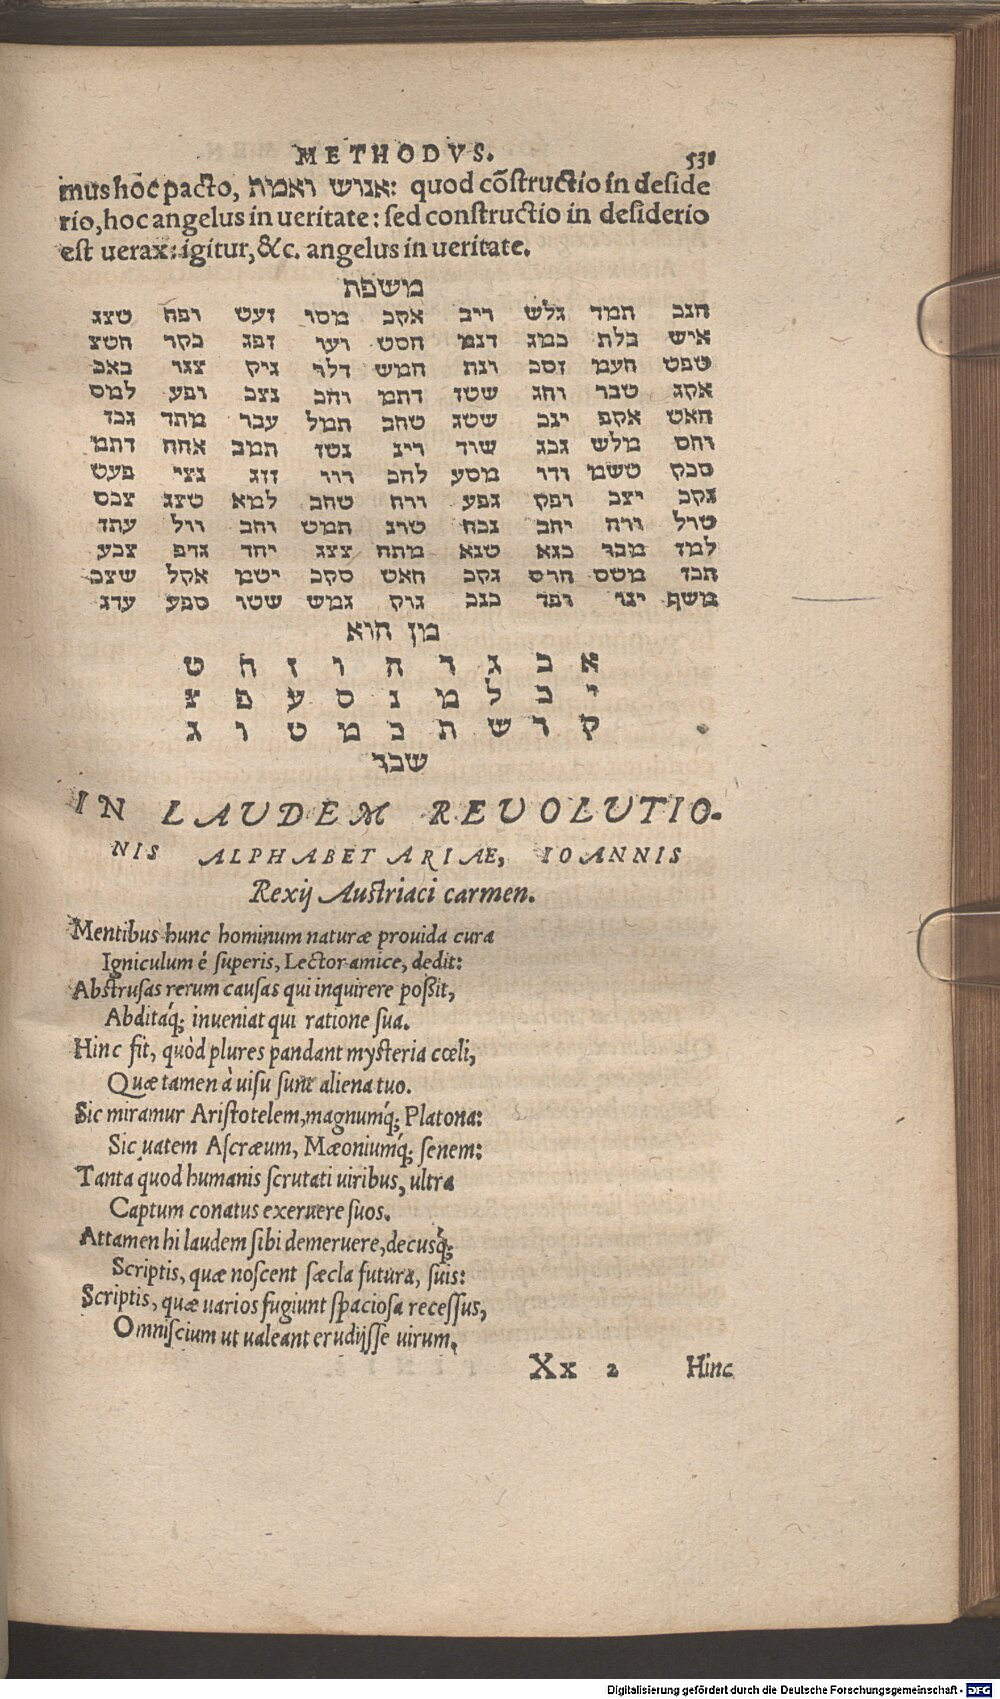 METHODVS. 531
imus hoc pacto, אנוש ואמת: quod cõſtructio in deſide
rio, hoc angelus in ueritate: ſed conſtructio in deſiderio
eſt uerax: igitur, &c. angelus in ueritate.
משפת
חנב חמד גלש ריב אקב מסו זעט ופח טצג
איש בלת במג דנמ חסט ועו זפג בקר חטצ
טפט חעמ זסב ונת חמש דלו גיק צגו באב
אקג טבר וחג שטד דתמ וחב נצב ופע למס
חאט אקפ ינב שטג טחב תמל עבר מתד גבד
וחס מלש גבג שוד ריג נטד תמב אחח דתמ
סבק טשמ ודו מסע לחב רוי זדג גצי פעט
גקב יצב ופק גפע וות טחב למא טצג צבס
טול ורח יחב נבח טרג תמט וחב וול עתד
למד מבר בגא טנא מתח צצג יחד גדפ צבע
חבד מטס חרס גקב חאט סקב יטמ אקל שצב
משף יגו ופד בנב גוק גמש שטו ספע עדג
מן חוא
א ב ג ד ה ו ז ח ט
י כ ל מ נ ס ע פ צ
ק ר ש ת כ מ ט ו ג
שבר
IN LAUDEM REUOLUTIO-
NIS ALPHABETARIAE, IOANNIS
Rexij Auſtriaci carmen.
Mentibus hunc hominum naturæ prouida cura
Igniculum é ſuperis, Lector amice, dedit:
Abſtruſas rerum cauſas qui inquirere poßit,
Abditáq; inueniat qui ratione ſua.
Hinc fit, quòd plures pandant myſteria cœli,
Quæ tamen à uiſu ſunt aliena tuo.
Sic miramur Ariſtotelem, magnumq́; Platona:
Sic uatem Aſcræum, Mæoniumq́; ſenem:
Tanta quod humanis ſcrutati uiribus, ultra
Captum conatus exeruere ſuos.
Attamen hi laudem ſibi demeruere, decusq́;
Scriptis, quæ noſcent ſæcla futura, ſuis:
Scriptis, quæ uarios fugiunt ſpacioſa receſſus,
Omniſcium ut ualeant erudijſſe uirum.
Xx 2 Hinc
Digitalisierung gefördert durch die Deutsche Forschungsgemeinschaft - DFG